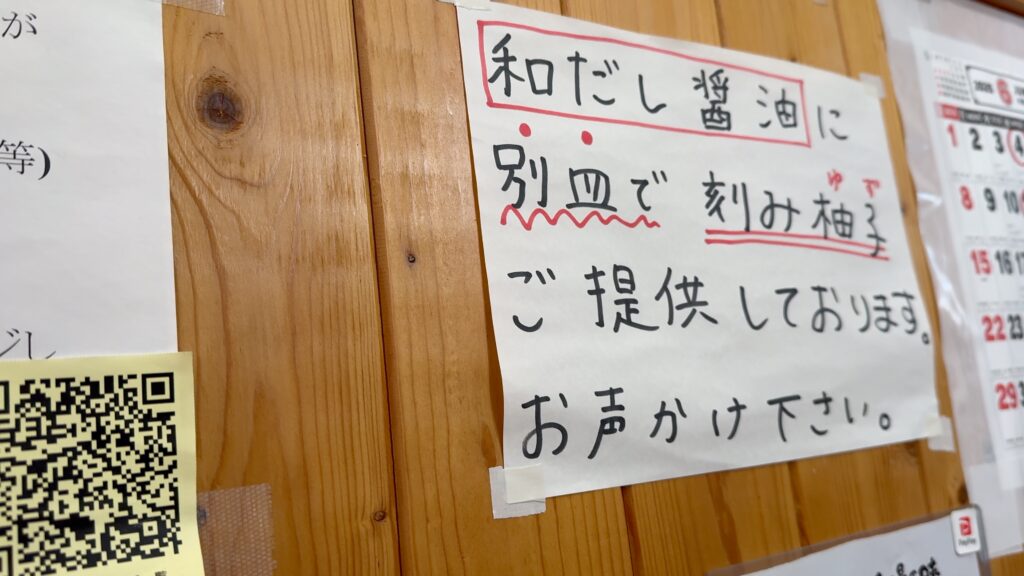 が
等)
ジし
和だし醤油に
別皿で 刻み柚子
ゆず
ご提供しております。
お声かけ下さい。
2026 6
1 2 3 4
8 9 10
15 16 17
22 23
29
PayPay